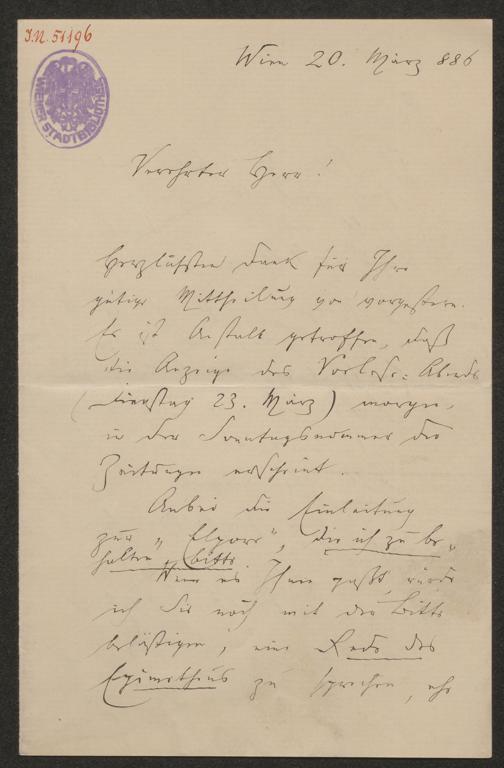 J.N. 51196
WIENER STADTBIBLIOTHEK
Wien 20. März 886
Verehrter Herr!
Herzlichsten Dank für Ihre
gütige Mittheilung von vorgestern.
Es ist Anstalt getroffen, daß
die Anzeige des Vorlese-Abends
(Dienstag 23. März) morgen,
in der Sonntagsnummer der
Zeitungen erscheint.
Anbei die Einleitung
zur „Elpore", die ich zu be-
halten bitte
Wenn es Ihnen paßt, würde
ich Sie noch mit der Bitte
belästigen, eine Rede des
Epimetheus zu sprechen, ehe